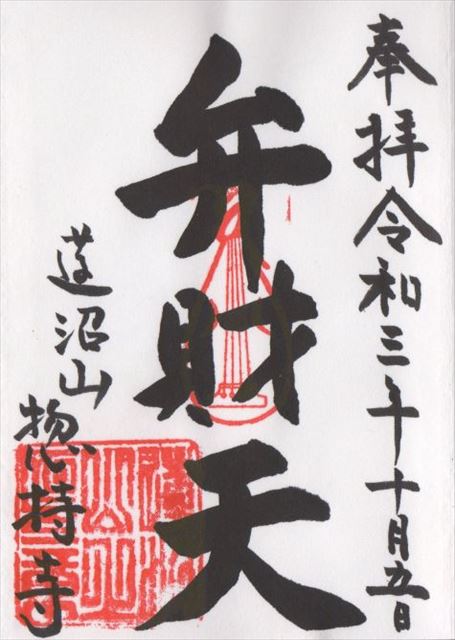 奉拝令和三年十月五日
弁財天
蓮沼山
惣持寺